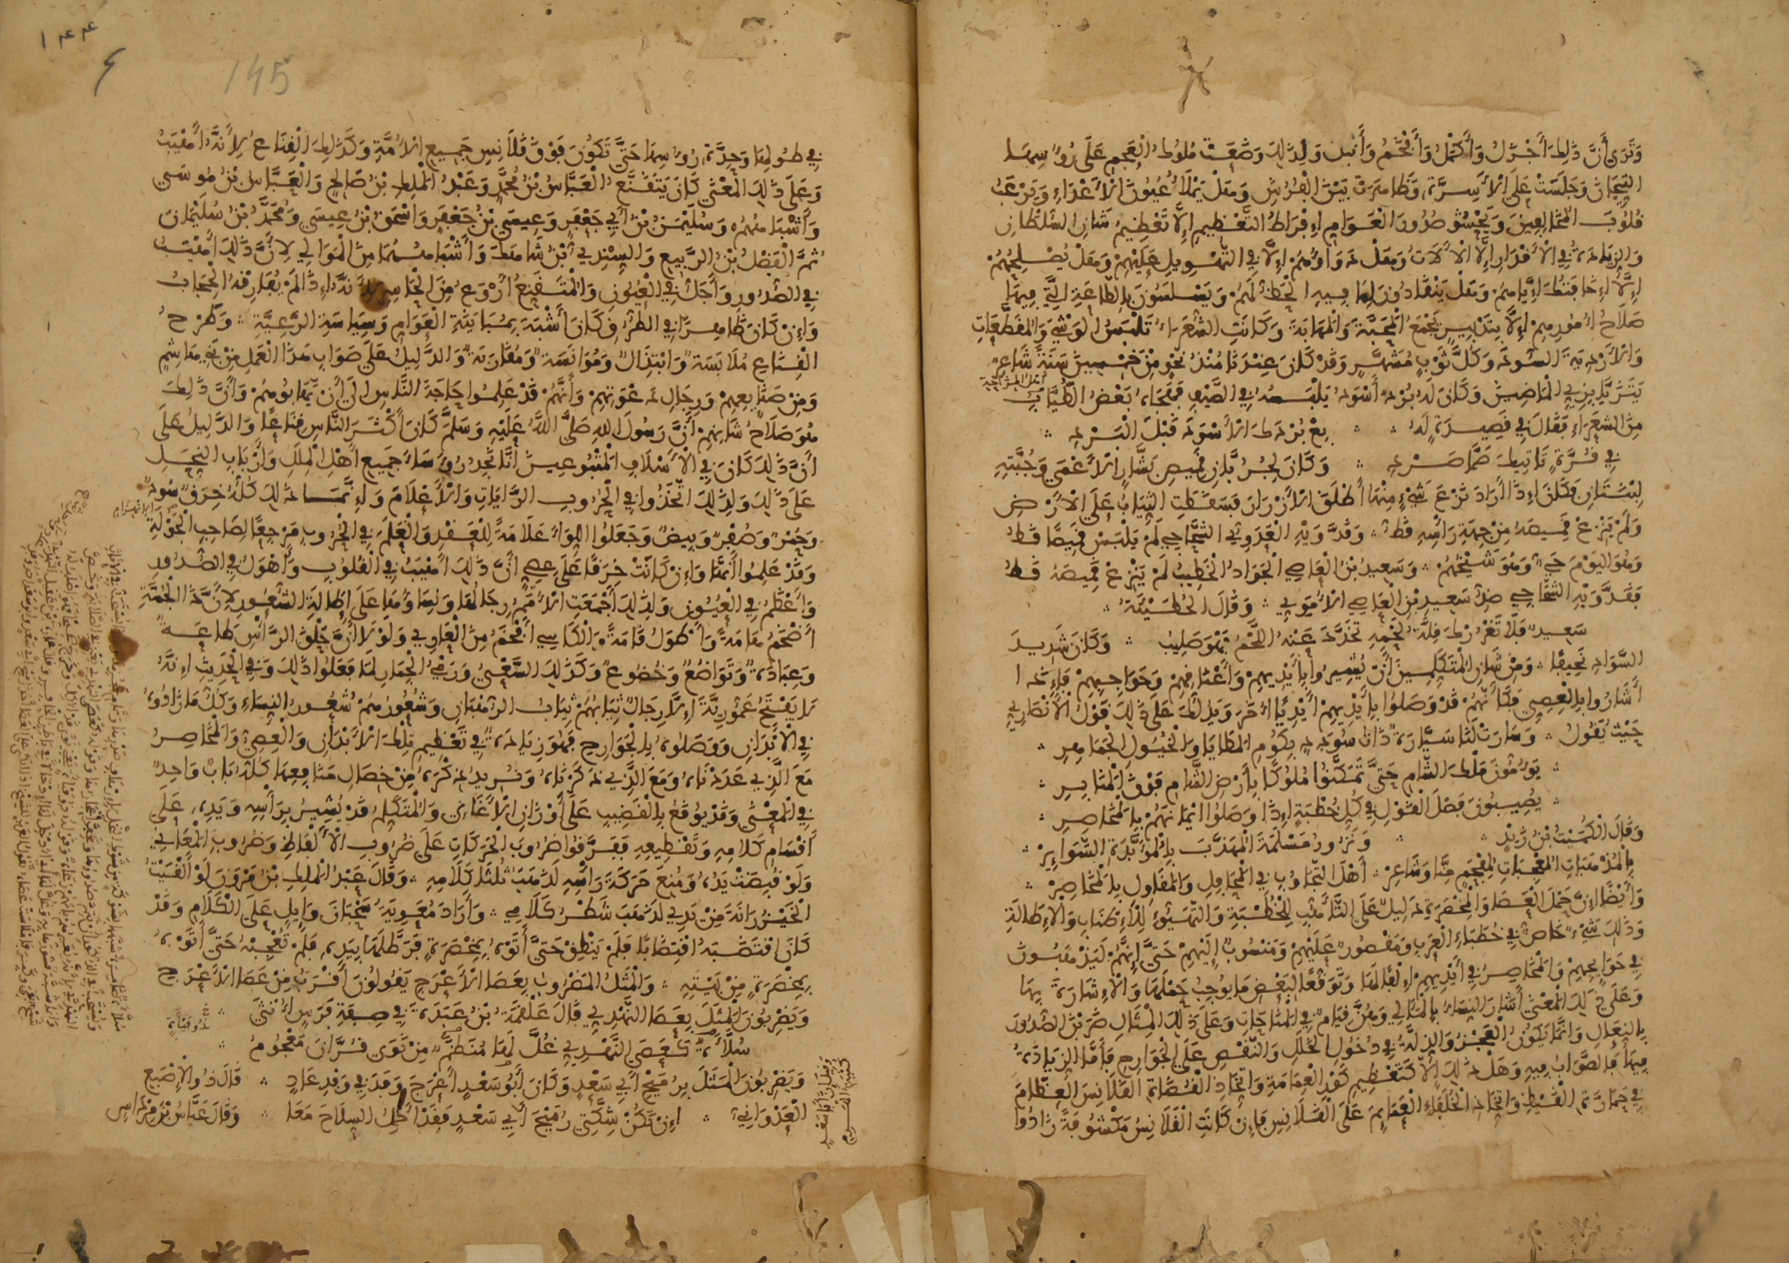 وَتَرَى أَنَّ ذَلِكَ أَجْزَلُ وَأَكْمَلُ وَأَفْخَمُ وَأَنْبَلُ وَلِذَلِكَ وَضَعَتْ مُلُوكُ الْعَجَمِ عَلَى رُؤُسِهَا
التِّيجَانَ وَجَلَسَتْ عَلَى الْأَسِرَّةِ وَظَاهَرَتْ بَيْنَ الْفُرُشِ وَهَلْ يَمْلَأُ عُيُونَ الْأَعْدَاءِ وَيُرْعِبُ
قُلُوبَ الْمُخَالِفِينَ وَيَحْشُو صُدُورَ الْعَوَامِّ إِفْرَاطَ التَّعْظِيمِ إِلَّا تَعْظِيمُ شَأْنِ السُّلْطَانِ
وَالزِّيَادَةُ فِي الْأَقْدَارِ إِلَّا الْآلَاتُ وَهَلْ دَوَاؤُهُمْ إِلَّا فِي التَّهْوِيلِ عَلَيْهِمْ وَهَلْ يُصْلِحُهُمْ
إِلَّا إِخَافَتُكَ إِيَّاهُمْ وَهَلْ يَنْقَادُونَ لِمَا فِيهِ الْحَظُّ لَهُمْ وَيَسْلَسُونَ بِالطَّاعَةِ الَّتِي فِيهَا
صَلَاحُ أُمُورِهِمْ إِلَّا بِتَدْبِيرٍ يَجْمَعُ الْمَحَبَّةَ وَالْمَهَابَةَ وَكَانَتِ الشُّعَرَاءُ تَلْبَسُ الْوَشْيَ وَالْمُقَطَّعَاتِ
وَالْأَرْدِيَةَ السُّودَ وَكُلَّ ثَوْبٍ مُشَهَّرٍ وَقَدْ كَانَ عِنْدَنَا مُنْذُ نَحْوٍ مِنْ خَمْسِينَ سَنَةً شَاعِرٌ
يَتَزَيَّا بِزِيِّ الْمَاضِينَ وَكَانَ لَهُ بُرْدٌ أَسْوَدُ يَلْبَسُهُ فِي الصَّيْفِ فَهَجَاهُ بَعْضُ الطِّيَابِ
مِنَ الشُّعَرَاءِ فَقَالَ فِي قَصِيدَةٍ لَهُ بِعْ بُرْدَكَ الْأَسْوَدَ قَبْلَ الْبَرْدِ
فِي قُرَّةٍ تَأْتِيكَ صَمًّا صَرْدِ وَكَانَ لِجُرُبَّانِ قَمِيصِ بَشَّارٍ الْأَعْمَى وَجُبَّتِهِ
لِبْنَتَانِ فَكَانَ إِذَا أَرَادَ نَزْعَ شَيْءٍ مِنْهَا أَطْلَقَ الْأَزْرَارَ فَسَقَطَتِ الثِّيَابُ عَلَى الْأَرْضِ
وَلَمْ يَنْزِعْ قَمِيصَهُ مِنْ جِهَةِ رَأْسِهِ قَطُّ وَقَدَّوَيْهِ الْعَدَوِيُّ الشَّحَّاجِيُّ لَمْ يَلْبَسْ قَمِيصًا قَطُّ
وَهُوَ الْيَوْمَ حَيٌّ وَهُوَ شَيْخُهُمْ وَسَعِيدُ بْنُ الْعَاصِي الْجَوَادُ الْخَطِيبُ لَمْ يَنْزِعْ قَمِيصَهُ قَطُّ
فَقَدَّوَيْهِ الشَّحَّاجِي ضِدُّ سَعِيدِ بْنِ الْعَاصِي الْأُمَوِيِّ وَقَالَ الْحُطَيْئَةُ
سَعِيدٌ فَلَا تَغْرُرْكَ قِلَّةُ لَحْمِهِ تَخَدَّدَ عَنْهُ اللَّحْمُ فَهْوَ صَلِيبُ وَكَانَ شَدِيدَ
السَّوَادِ نَحِيفًا وَمِنْ شَأْنِ الْمُتَكَلِّمِينَ أَنْ يُشِيرُوا بِأَيْدِيهِمْ وَأَعْنَاقِهِمْ وَحَوَاجِبِهِمْ فَإِذَا
أَشَارُوا بِالْعِصِيِّ فَكَأَنَّهُمْ قَدْ وَصَلُوا بِأَيْدِيهِمْ أَيْدِيًا أُخَرَ وَيَدُلُّكَ عَلَى ذَلِكَ قَوْلُ الْأَنْصَارِيِّ
حَيْثُ يَقُولُ وَسَارَتْ لَنَا سَيَّارَةٌ ذَاتُ سُودَدٍ بِكُومِ الْمَطَايَا وَالْخُيُولِ الْجَمَاهِرِ
يَؤُمُّونَ مُلْكَ الشَّامِ حَتَّى تَمَكَّنُوا مُلُوكًا بِأَرْضِ الشَّامِ فَوْقَ الْمَنَابِرِ
يُصِيبُونَ فَصْلَ الْقَوْلِ فِي كُلِّ خُطْبَةٍ إِذَا وَصَلُوا أَيْمَانَهُمْ بِالْمَخَاصِرِ
وَقَالَ الْكُمَيْتُ بْنُ زَيْدٍ وَنَزُورُ مَسْلَمَةَ الْمُهَذَّبَ بِالْمُؤَبَّدَةِ السَّوَائِرْ
بِالْمُذْهَبَاتِ الْمُعْجِبَاتِ لِمُفْحَمٍ مِنَّا وَشَاعِرْ أَهْلَ التَّجَاوُبِ فِي الْمَحَافِلِ وَالْمَقَاوِلِ بِالْمَخَاصِرْ
وَأَيْضًا إِنَّ حَمْلَ الْعَصَا وَالْمِخْصَرَةِ دَلِيلٌ عَلَى التَّأَهُّبِ لِلْخُطْبَةِ وَالتَّهَيُّؤِ لِلْإِطْنَابِ وَالْإِطَالَةِ
وَذَلِكَ شَيْءٌ خَاصٌّ فِي خُطَبَاءِ الْعَرَبِ وَمَقْصُورٌ عَلَيْهِمْ وَمَنْسُوبٌ إِلَيْهِمْ حَتَّى إِنَّهُمْ لَيَذْهَبُونَ
فِي حَوَائِجِهِمْ وَالْمَخَاصِرُ فِي أَيْدِيهِمْ إِلْفًا لَهَا وَتَوَقُّعًا لِبَعْضِ مَا يُوجِبُ حَمْلَهَا وَالْإِشَارَةَ بِهَا
وَعَلَى ذَلِكَ الْمَعْنَى أَشَارَ النِّسَاءُ بِالْمَآلِي وَهُنَّ قِيَامٌ فِي الْمَنَاحَاتِ وَعَلَى ذَلِكَ الْمِثَالِ ضَرَبْنَ الصُّدُورَ
بِالنِّعَالِ وَإِنَّمَا يَكُونُ الْعَجْزُ وَالذِّلَّةُ فِي دُخُولِ الْخَلَلِ وَالنَّقْصِ عَلَى الْجَوَارِحِ فَأَمَّا الزِّيَادَةُ
فِيهَا فَالصَّوَابُ فِيهِ وَهَلْ ذَلِكَ إِلَّا كَتَعْظِيمِ كَوْرِ الْعِمَامَةِ وَاتِّخَاذِ الْقُضَاةِ الْقَلَانِسَ الْعِظَامَ
فِي حَمَارَّةِ الْقَيْظِ وَاتِّخَاذِ الْخُلَفَاءِ الْعَمَائِمَ عَلَى الْقَلَانِسِ فَإِنْ كَانَتِ الْقَلَانِسُ مَكْشُوفَةً زَادُوا
١٤٤
145
فِي طُولِهَا وَحِدَّةِ رُؤُسِهَا حَتَّى تَكُونَ فَوْقَ قَلَانِسِ جَمِيعِ الْأُمَّةِ وَكَذَلِكَ الْقِنَاعُ لِأَنَّهُ أَهْيَبُ
وَعَلَى ذَلِكَ الْمَعْنَى كَانَ يَتَقَنَّعُ الْعَبَّاسُ بْنُ مُحَمَّدٍ وَعَبْدُ الْمَلِكِ بْنُ صَالِحٍ وَالْعَبَّاسُ بْنُ مُوسَى
وَأَشْبَاهُهُمْ وَسُلَيْمَنُ بْنُ أَبِي جَعْفَرٍ وَعِيسَى بْنُ جَعْفَرٍ وَإِسْحَقُ بْنُ عِيسَى وَمُحَمَّدُ بْنُ سُلَيْمَانَ
ثُمَّ الْفَضْلُ بْنُ الرَّبِيعِ وَالسِّنْدِيُّ بْنُ شَاهَكَ وَأَشْبَاهُهُمَا مِنَ الْمَوَالِي لِأَنَّ ذَلِكَ أَهْيَبُ
فِي الصُّدُورِ وَأَجَلُّ فِي الْعُيُونِ وَالْمُتَقَنِّعُ أَرْوَعُ مِنَ الْحَاسِرِ لِأَنَّهُ إِذَا لَمْ يُفَارِقْهُ الْحِجَابُ
وَإِنْ كَانَ ظَاهِرًا فِي الطُّرُقِ وَكَانَ أَشْبَهَ بِمُبَايَنَةِ الْعَوَامِّ وَسِيَاسَةِ الرَّعِيَّةِ وَطَرْحُ
الْقِنَاعِ مُلَابَسَةٌ وَابْتِذَالٌ وَمُؤَانَسَةٌ وَمُقَارَبَةٌ وَالدَّلِيلُ عَلَى صَوَابِ هَذَا الْعَمَلِ مِنْ بَنِي هَاشِمٍ
وَمِنْ صَنَائِعِهِمْ وَرِجَالِ دَعْوَتِهِمْ وَأَنَّهُمْ قَدْ عَلِمُوا حَاجَةَ النَّاسِ إِلَى أَنْ يَهَابُوهُمْ وَأَنَّ ذَلِكَ
هُوَ صَلَاحُ شَأْنِهِمْ أَنَّ رَسُولَ اللهِ صَلَّى اللهُ عَلَيْهِ وَسَلَّمَ كَانَ أَكْثَرَ النَّاسِ قِنَاعًا وَالدَّلِيلُ عَلَى
أَنَّ ذَلِكَ كَانَ فِي الْأَسْلَافِ الْمَتْبُوعِينَ أَنَّا نَجِدُ رُؤَسَاءَ جَمِيعِ أَهْلِ الْمِلَلِ وَأَرْبَابِ النِّحَلِ
عَلَى ذَلِكَ وَلِذَلِكَ اتَّخَذُوا فِي الْحُرُوبِ الرَّايَاتِ وَالْأَعْلَامَ وَإِنَّمَا ذَلِكَ كُلُّهُ خِرَقٌ سُودٌ
وَحُمْرٌ وَصُفْرٌ وَبِيضٌ وَجَعَلُوا اللِّوَاءَ عَلَامَةً لِلْعَقْدِ وَالْعَلَمَ فِي الْحُرُوبِ مَرْجِعًا لِصَاحِبِ الْجَوْلَةِ
وَقَدْ عَلِمُوا أَنَّهَا وَإِنْ كَانَتْ خِرَقًا عَلَى عِصِيٍّ أَنَّ ذَلِكَ أَهْيَبُ فِي الْقُلُوبِ وَأَهْوَلُ فِي الصُّدُورِ
وَأَعْظَمُ فِي الْعُيُونِ وَلِذَلِكَ أَجْمَعَتِ الْأُمَمُ رِجَالُهَا وَنِسَاؤُهَا عَلَى إِطَالَةِ الشُّعُورِ لِأَنَّ ذَا الْجُمَّةِ
أَضْخَمُ هَامَةً وَأَطْوَلُ قَامَةً وَالْكَاسِي أَفْخَمُ مِنَ الْعَارِي وَلَوْلَا أَنَّ حَلْقَ الرَّأْسِ طَاعَةٌ
وَعِبَادَةٌ وَتَوَاضُعٌ وَخُضُوعٌ وَكَذَلِكَ السَّعْيُ وَرَمْيُ الْجِمَارِ لَمَا فَعَلُوا ذَلِكَ وَفِي الْحَدِيثِ إِنَّهُ
لَا يَفْتَحُ عَمُّورِيَّةَ إِلَّا رِجَالٌ ثِيَابُهُمْ ثِيَابُ الرُّهْبَانِ وَشُعُورُهُمْ شُعُورُ النِّسَاءِ وَكُلُّ مَا زَادُوهُ
فِي الْأَبْدَانِ وَوَصَلُوهُ بِالْجَوَارِحِ فَهُوَ زِيَادَةٌ فِي تَعْظِيمِ تِلْكَ الْأَبْدَانِ وَالْعِصِيُّ وَالْمَخَاصِرُ
مَعَ الَّذِي عَدَدْنَاهُ وَمَعَ الَّذِي ذَكَرْنَاهُ وَنُرِيدُ ذِكْرَهُ مِنْ خِصَالِ مَنَافِعِهَا كُلُّهُ بَابٌ وَاحِدٌ
فِي الْمَعْنَى وَقَدْ يُوَقِّعُ بِالْقَضِيبِ عَلَى أَوْزَانِ الْأَغَانِي وَالْمُتَكَلِّمُ قَدْ يُشِيرُ بِرَأْسِهِ وَيَدِهِ عَلَى
أَقْسَامِ كَلَامِهِ وَتَقْطِيعِهِ فَفَرَّقُوا ضُرُوبَ الْحَرَكَاتِ عَلَى ضُرُوبِ الْأَلْفَاظِ وَضُرُوبِ الْمَعَانِي
وَلَوْ قُبِضَتْ يَدُهُ وَمُنِعَ حَرَكَةَ رَأْسِهِ لَذَهَبَ ثُلُثَا كَلَامِهِ وَقَالَ عَبْدُ الْمَلِكِ بْنُ مَرْوَنَ لَوْ أَلْقَيْتُ
الْخَيْزُرَانَةَ مِنْ يَدِي لَذَهَبَ شَطْرُ كَلَامِي وَأَرَادَ مُعَوِيَةُ سَحْبَانَ وَائِلٍ عَلَى الْكَلَامِ وَقَدْ
كَانَ اقْتَضَبَهُ اقْتِضَابًا فَلَمْ يَنْطِقْ حَتَّى أَتَوْهُ بِمِخْصَرَةٍ فَرَطَلَهَا بِيَدِهِ فَلَمْ تُعْجِبْهُ حَتَّى أَتَوْهُ
بِمِخْصَرَةٍ مِنْ بَيْتِهِ وَالْمَثَلُ الْمَضْرُوبُ بِعَصَا الْأَعْرَجِ يَقُولُونَ أَقْرَبُ مِنْ عَصَا الْأَعْرَجِ
وَيَضْرِبُونَ الْمَثَلَ بِعَصَا النَّهْدِي قَالَ عَلْقَمَةُ بْنُ عَبَدَةَ فِي صِفَةِ فَرَسٍ أُنْثَى
سُلَّاءَةٌ كَعَصَى النَّهْدِيِّ غُلَّ لَهَا مُنَظَّمٌ مِنْ نَوَى قُرَّانَ مَعْجُومُ
وَيَضْرِبُونَ الْمَثَلَ بِرُمَيْحِ أَبِي سَعْدٍ وَكَانَ أَبُو سَعْدٍ أَعْرَجَ وَفَدَ فِي وَفْدِ عَادٍ قَالَ ذُو الْإِصْبَعِ
الْعَدْوَانِيُّ إِنْ تَكُنْ شِكَّتِي رُمَيْحَ أَبِي سَعْدٍ فَقَدْ أَحْمِلُ السِّلَاحَ مَعَا وَقَالَ عَبَّاسُ بْنُ مِرْدَاسٍ